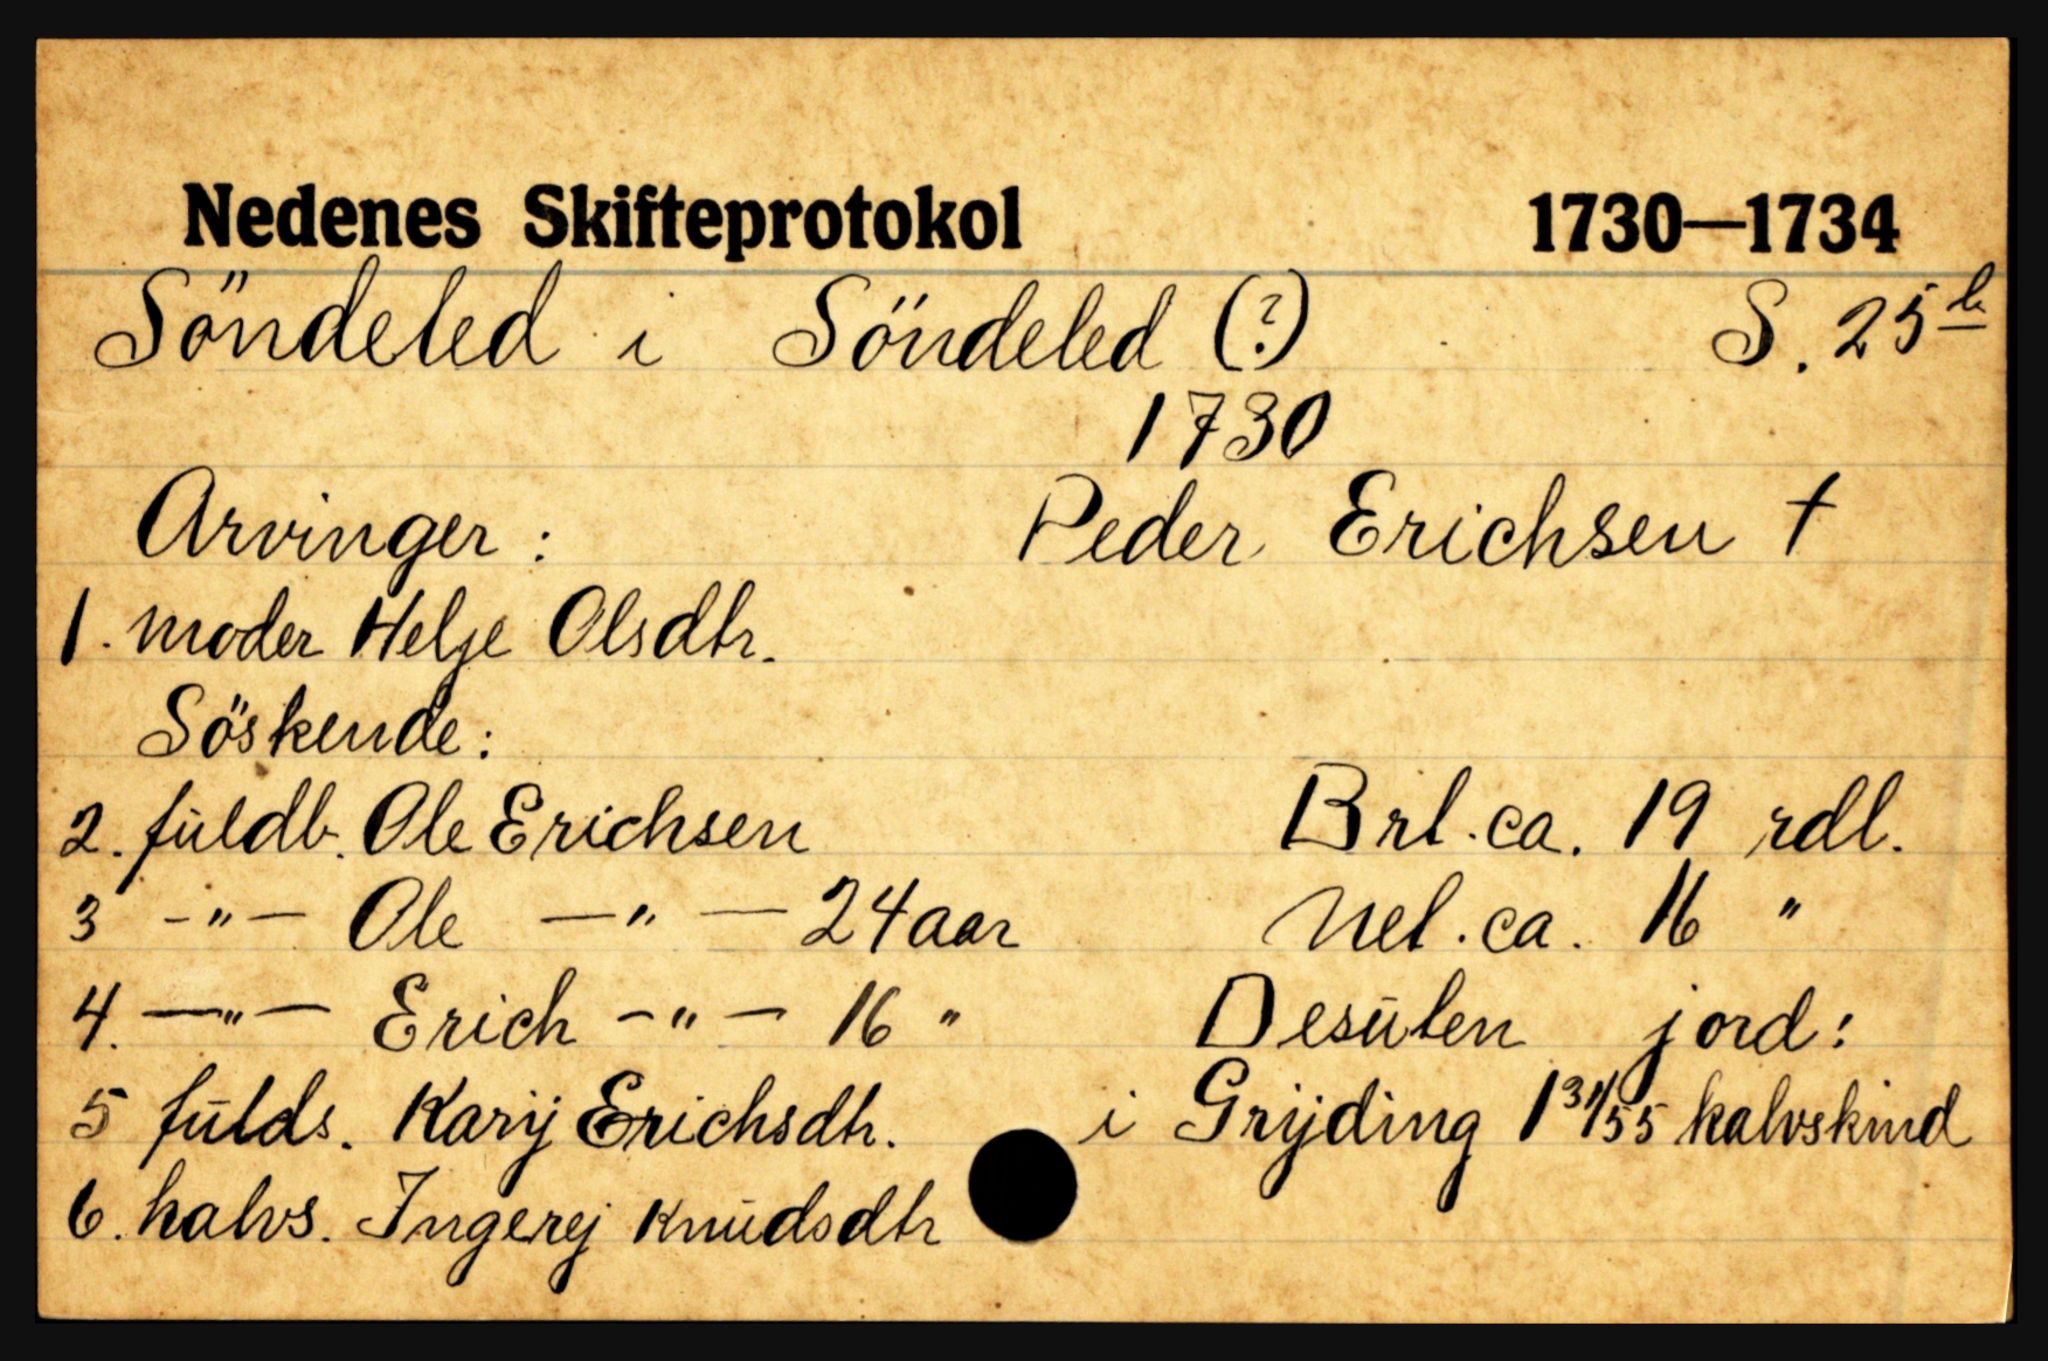 Nedenes Skifteprotokol 1730—1734
Söndeled i Söndeled (?) S. 25 b
1730
Arvinger: Peder Erichsen †
1. moder Helje Olsdtr.
Söskende:
2. fuldb. Ole Erichsen Brt. ca. 19 rdl.
3 -"- Ole -"- 24 aar Net. ca. 16 "
4. -"- Erich -"- 16 " Desuten jord:
5 fulds. Karij Erichsdtr. i Grijding 1 31/55 kalvskind
6. halvs. Ingerej Knudsdtr